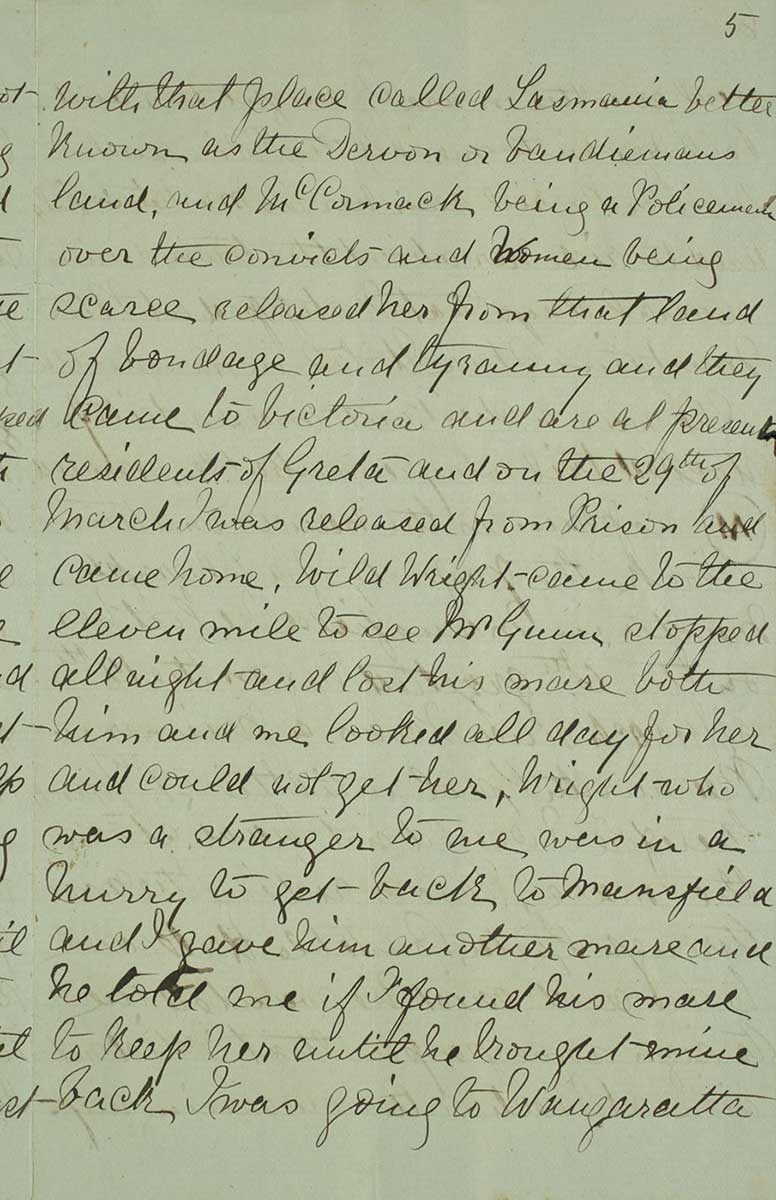 5
with that place called Tasmania better
known as the Dervon or Vandiemans
land, and McCormack being a Policeman
over the convicts and Women being
scarce released her from that land
of bondage and tyranny and they
came to Victoria and are at present
residents of Greta and on the 29th of
March I was released from Prison and
came home, Wild Wright came to the
eleven mile to see Mr Gunn stopped
all night and lost his mare both
him and me looked all day for her
and could not get her, Wright who
was a stranger to me was in a
hurry to get back to Mansfield
and I gave him another mare and
he told me if I found his mare
to keep her until he brought mine
back, I was going to Wangaratta